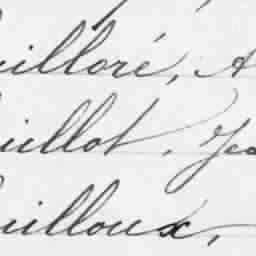 uilloré, A
uillot, Jea
uilloux,